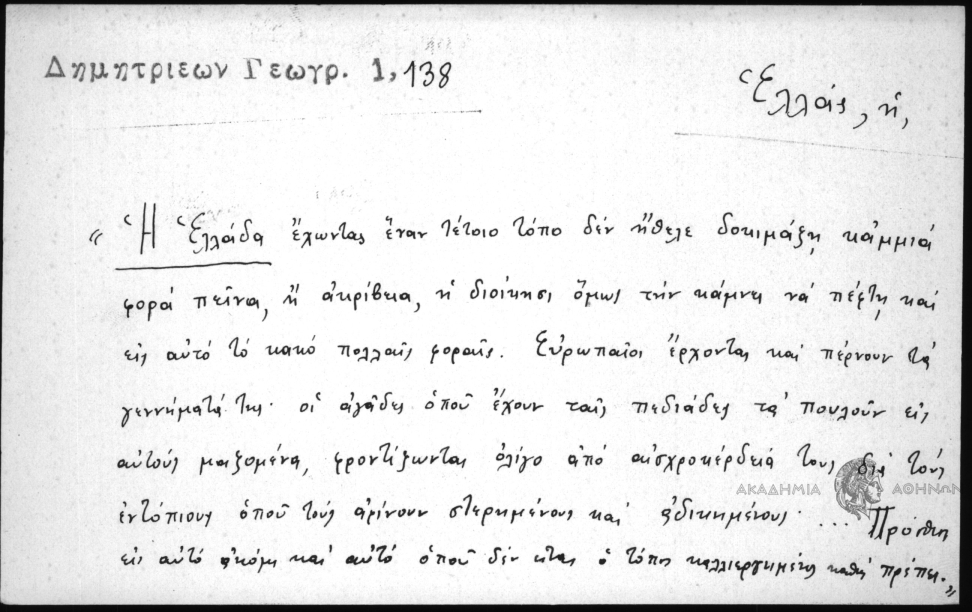 Δημητριεων Γεωγρ. 1, 138
Ἑλλάς, ἡ,
« Ἡ Ἑλλάδα ἔχωντας ἕναν τέτοιο τόπο δέν ἤθελε δοκιμάξῃ κάμμιά
φορά πεῖνα, ἤ ἀκρίβεια, ἡ διοίκησι ὅμως τήν κάμνει νά πέφτῃ καί
εἰς αὐτό τό κακό πολλαῖς φοραῖς. Εὐρωπαῖοι ἔρχονται καί πέρνουν τά
γεννήματά της· οἱ ἀγάδες ὁποῦ ἔχουν ταῖς πεδιάδες τά πουλοῦν εἰς
αὐτούς μαζομένα, φροντίζωντας ὀλίγο ἀπό αἰσχροκέρδειά τους διά τούς
ΑΚΑΔΗΜΙΑ ΑΘΗΝΩΝ
ἐντόπιους ὁποῦ τούς ἀφίνουν στερημένους καί ἀδικημένους· ... Πρόσθες
εἰς αὐτό ἀκόμη καί αὐτό ὁποῦ δέν εἶναι ὁ τόπος καλλιεργημένος καθώς πρέπει.»